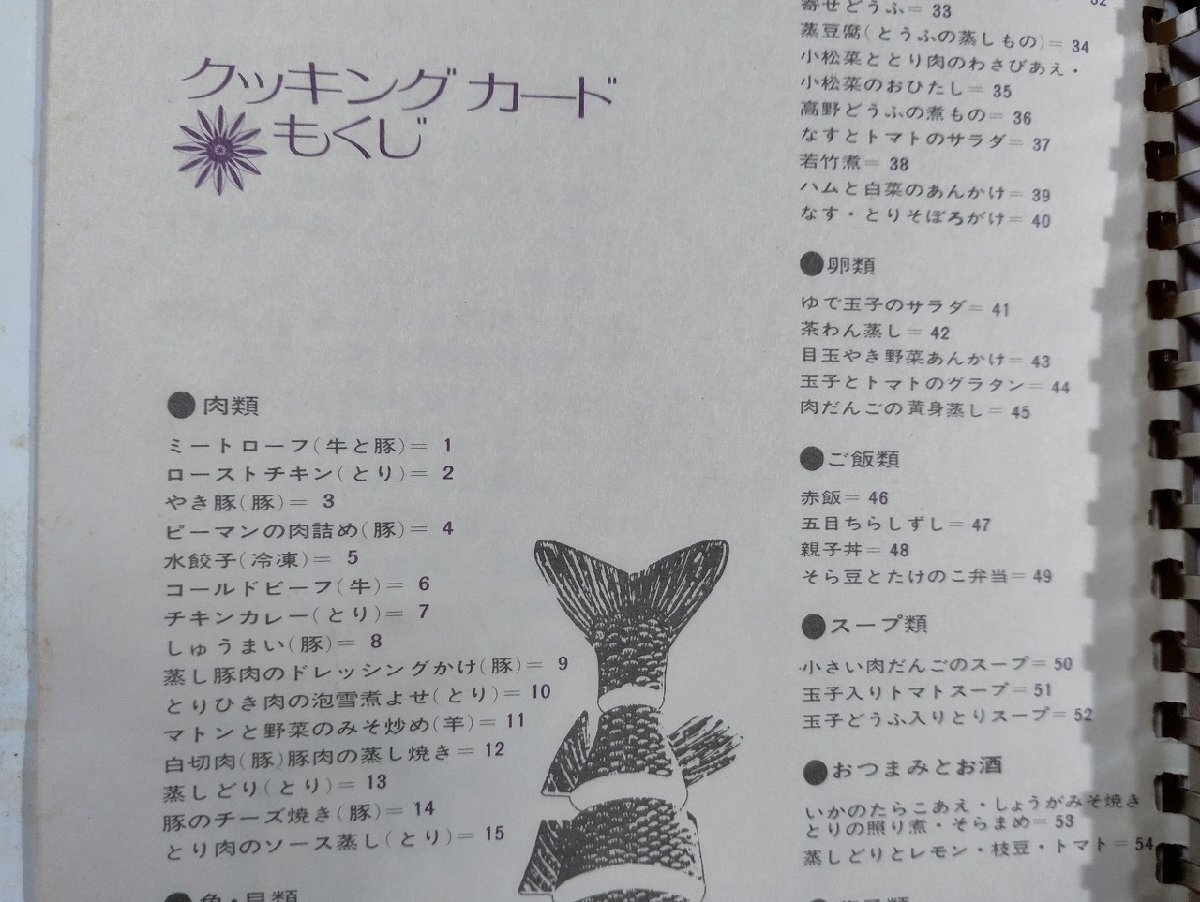 クッキングカード
もくじ
●肉類
ミートローフ(牛と豚)= 1
ローストチキン(とり)= 2
やき豚(豚)= 3
ピーマンの肉詰め(豚)= 4
水餃子(冷凍)= 5
コールドビーフ(牛)= 6
チキンカレー(とり)= 7
しゅうまい(豚)= 8
蒸し豚肉のドレッシングかけ(豚)= 9
とりひき肉の泡雪煮よせ(とり)= 10
マトンと野菜のみそ炒め(羊)= 11
白切肉(豚)豚肉の蒸し焼き= 12
蒸しどり(とり)= 13
豚のチーズ焼き(豚)= 14
とり肉のソース蒸し(とり)= 15
●魚・貝類
32
寄せどうふ= 33
蒸豆腐(とうふの蒸しもの)= 34
小松菜ととり肉のわさびあえ・
小松菜のおひたし= 35
高野どうふの煮もの= 36
なすとトマトのサラダ= 37
若竹煮= 38
ハムと白菜のあんかけ= 39
なす・とりそぼろがけ= 40
●卵類
ゆで玉子のサラダ= 41
茶わん蒸し= 42
目玉やき野菜あんかけ= 43
玉子とトマトのグラタン= 44
肉だんごの黄身蒸し= 45
●ご飯類
赤飯= 46
五目ちらしずし= 47
親子丼= 48
そら豆とたけのこ弁当= 49
●スープ類
小さい肉だんごのスープ= 50
玉子入りトマトスープ= 51
玉子どうふ入りとりスープ= 52
●おつまみとお酒
いかのたらこあえ・しょうがみそ焼き
とりの照り煮・そらまめ= 53
蒸しどりとレモン・枝豆・トマト= 54